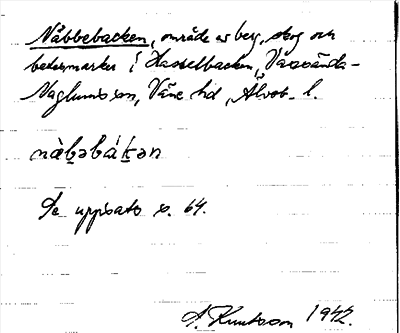 Nåbbebacken, område av berg, skog och
betesmarker i Hasselbacken, Vassända-
Naglums sn, Väne hd, Älvsb. l.
nàb̠əbák̠ən
Se uppsats s. 64.
A. Knutsson 1942.